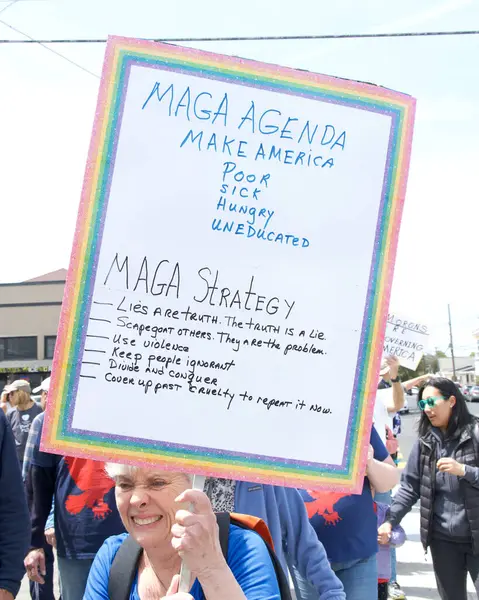 MAGA AGENDA
MAKE AMERICA
POOR
SICK
HUNGRY
UNEDUCATED
MAGA STRATEGY
— LIES ARE TRUTH. THE TRUTH IS A LIE.
— SCAPEGOAT OTHERS. THEY ARE THE PROBLEM.
— USE VIOLENCE
— KEEP PEOPLE IGNORANT
— DIVIDE AND CONQUER
— COVER UP PAST CRUELTY TO REPEAT IT NOW.
MORONS
ARE
GOVERNING
AMERICA